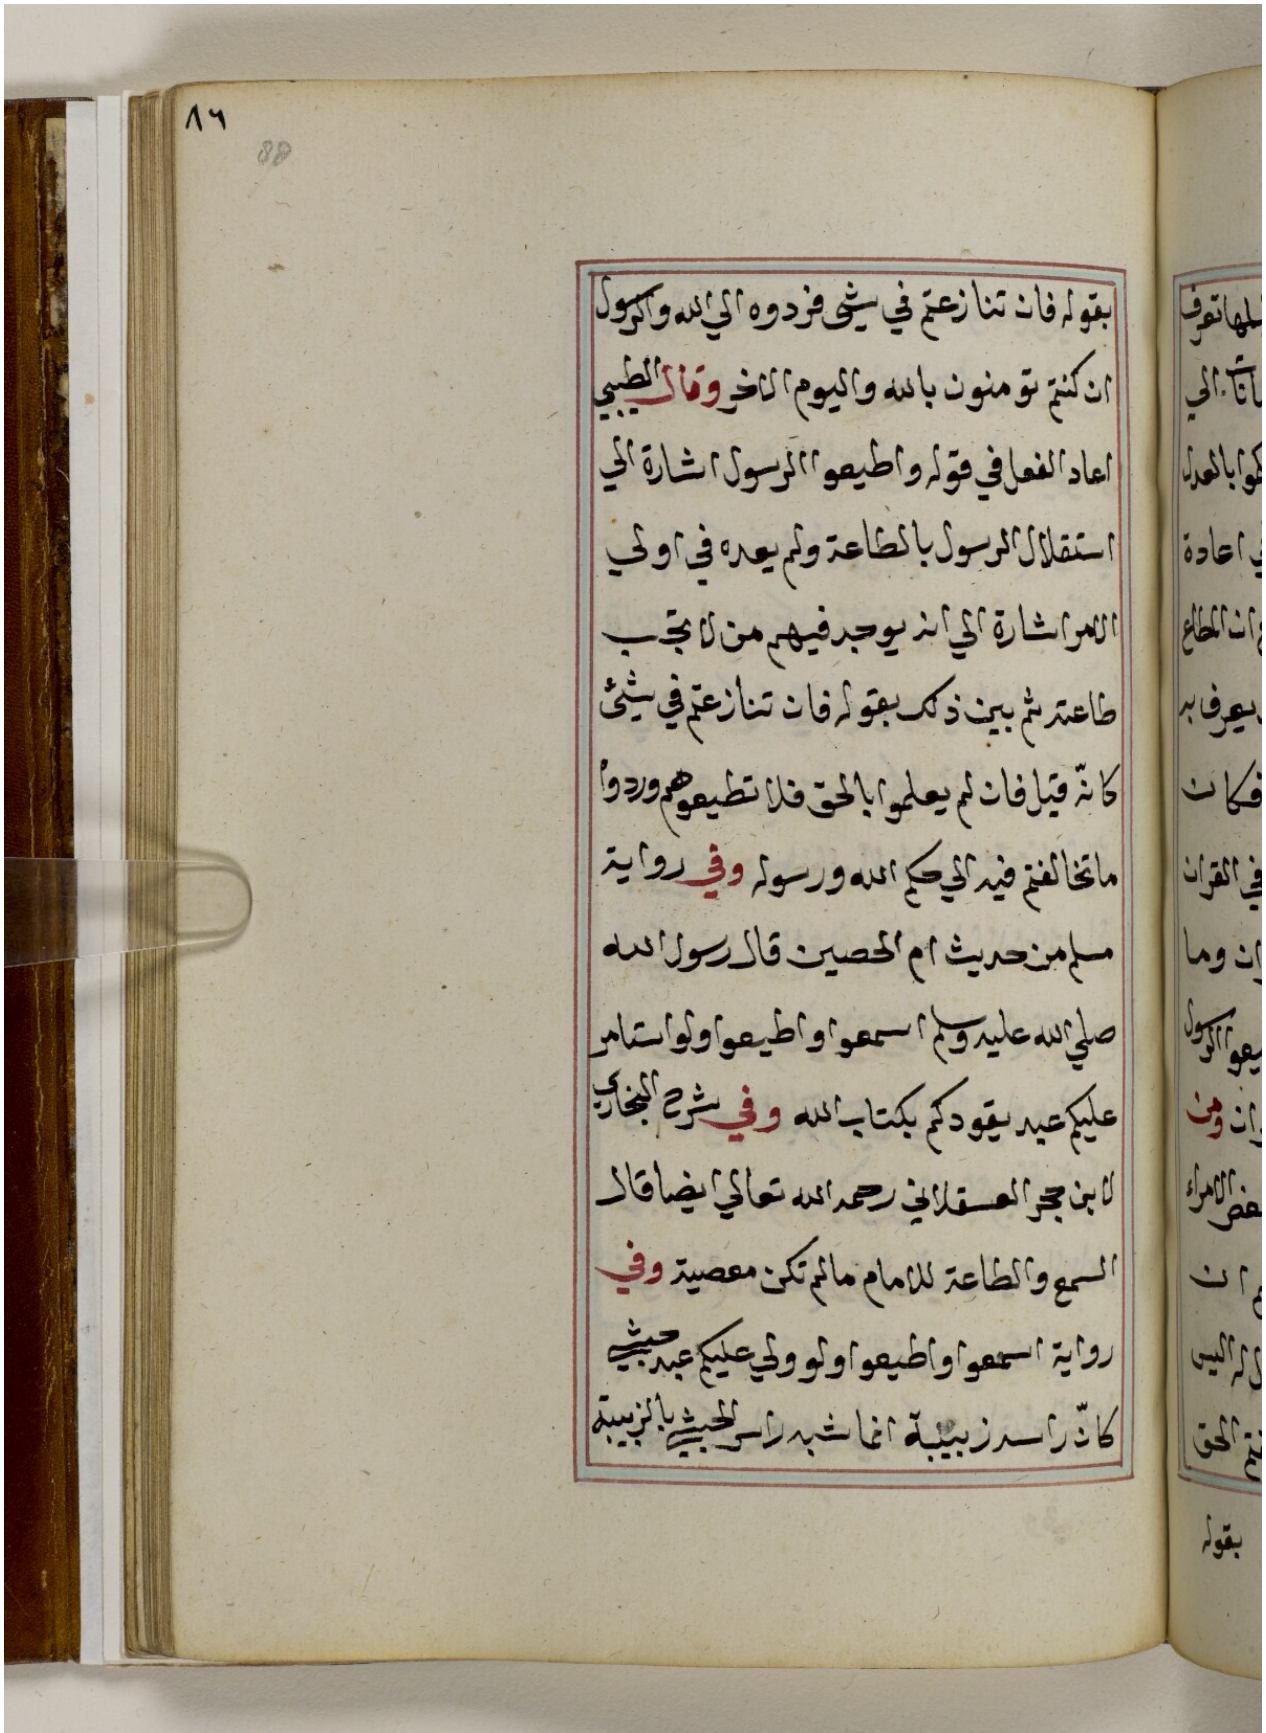 ٨٦
88
بقوله فان تنازعتم في شيء فردوه الي الله والرسول
ان كنتم تومنون بالله واليوم الاخر وقال الطيبي
اعاد الفعل في قوله واطيعوا الرسول اشارة الي
استقلال الرسول بالطاعة ولم يعده في اولي
الامر اشارة الي انه يوجد فيهم من لا تجب
طاعته ثم بين ذلك بقوله فان تنازعتم في شيئ
كانّه قيل فان لم يعلموا بالحق فلا تطيعوهم وردوا
ما تخالفتم فيه الي حكم الله ورسوله وفي رواية
مسلم من حديث ام الحصين قال رسول الله
صلي الله عليه وسلم اسمعوا واطيعوا ولو استامر
عليكم عبد يقودكم بكتاب الله وفي شرح البخاري
لابن حجر العسقلاني رحمه الله تعالي ايضا قال
السمع والطاعة للامام مالم تكن معصية وفي
رواية اسمعوا واطيعوا ولو ولي عليكم عبد حبشي
كانّ راسه زبيبة انما شبه راس الحبشي بالزبيبة
تعرف
الي
بالعدل
اعادة
ان المطاع
يعرف به
فكان
في القران
وما
الرسول
ومن
الامراء
ان
له اليس
الحق
بقوله